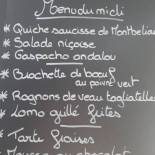 Menu du midi
* Quiche saucisse de Montbeliar
* Salade niçoise
* Gaspacho andalou
* Brochette de boeuf
au poivre vert
* Rognons de veau tagliatelles
* Lomo grillé frites
* Tarte fraises
au chocolat